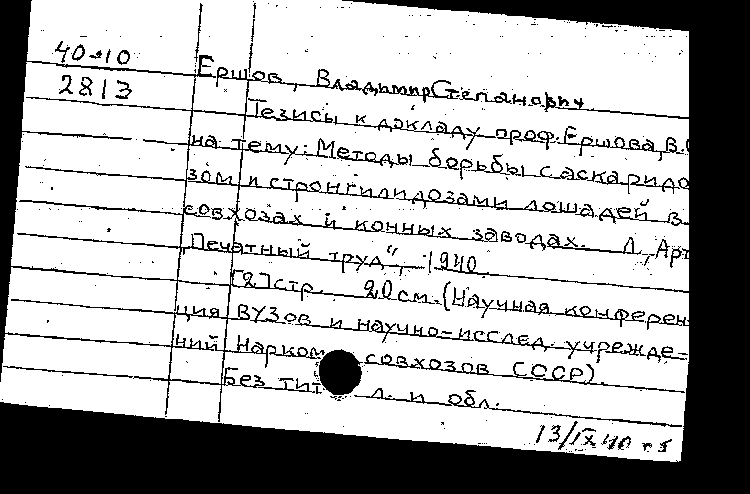 40-10
2813
Ершов, Владимир Степанович
Тезисы к докладу проф. Ершова, В.С
на тему: Методы борьбы с аскаридо
зом и стронгилидозами лошадей в
совхозах и конных заводах. Л, Арт
"Печатный труд", 1940
[2] стр. 20 см. (Научная конферен-
ция ВУЗов и научно-исслед. учрежде-
ний Нарком совхозов СССР).
Без тит л. и обл.
13/IX 40